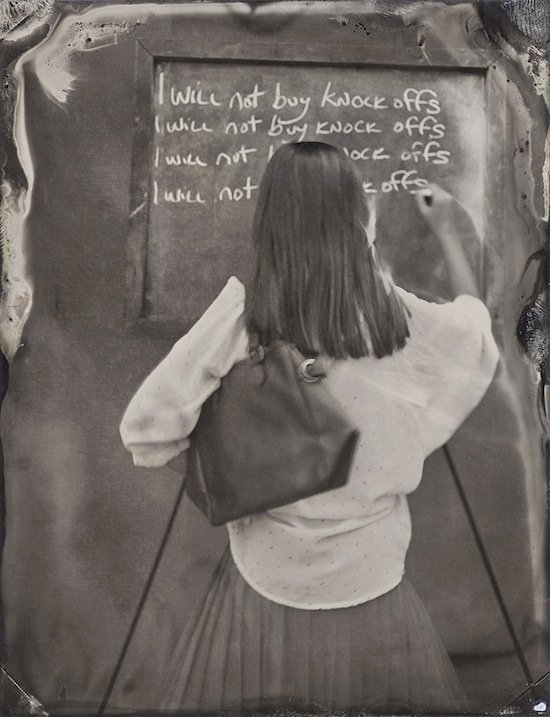 I will not buy knock offs
I will not buy knock offs
I will not ock offs
I will not k offs